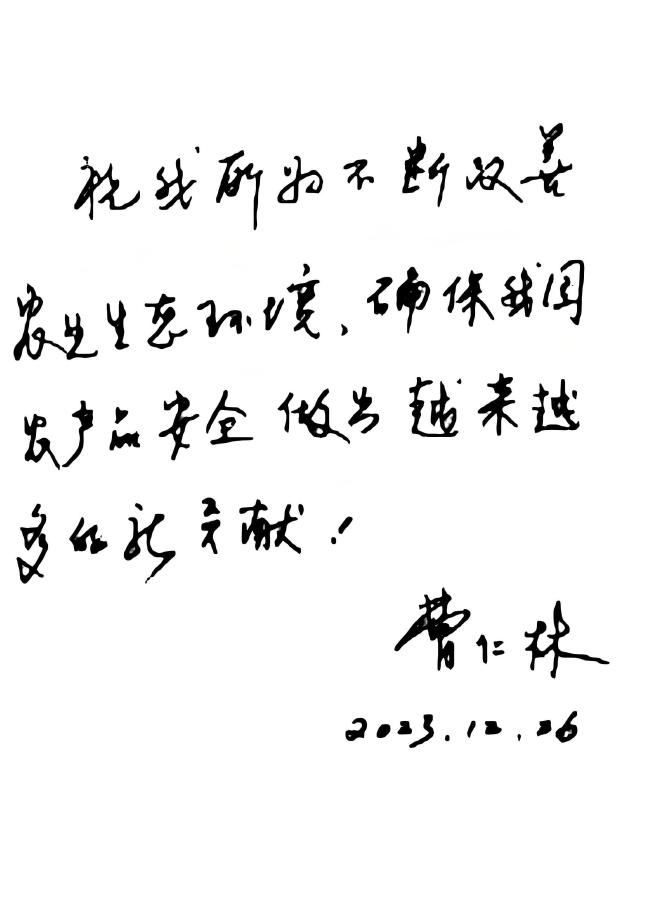 祝我所为不断改善
农业生态环境,确保我国
农产品安全做出越来越
多的新贡献!
曹仁林
2023.12.26